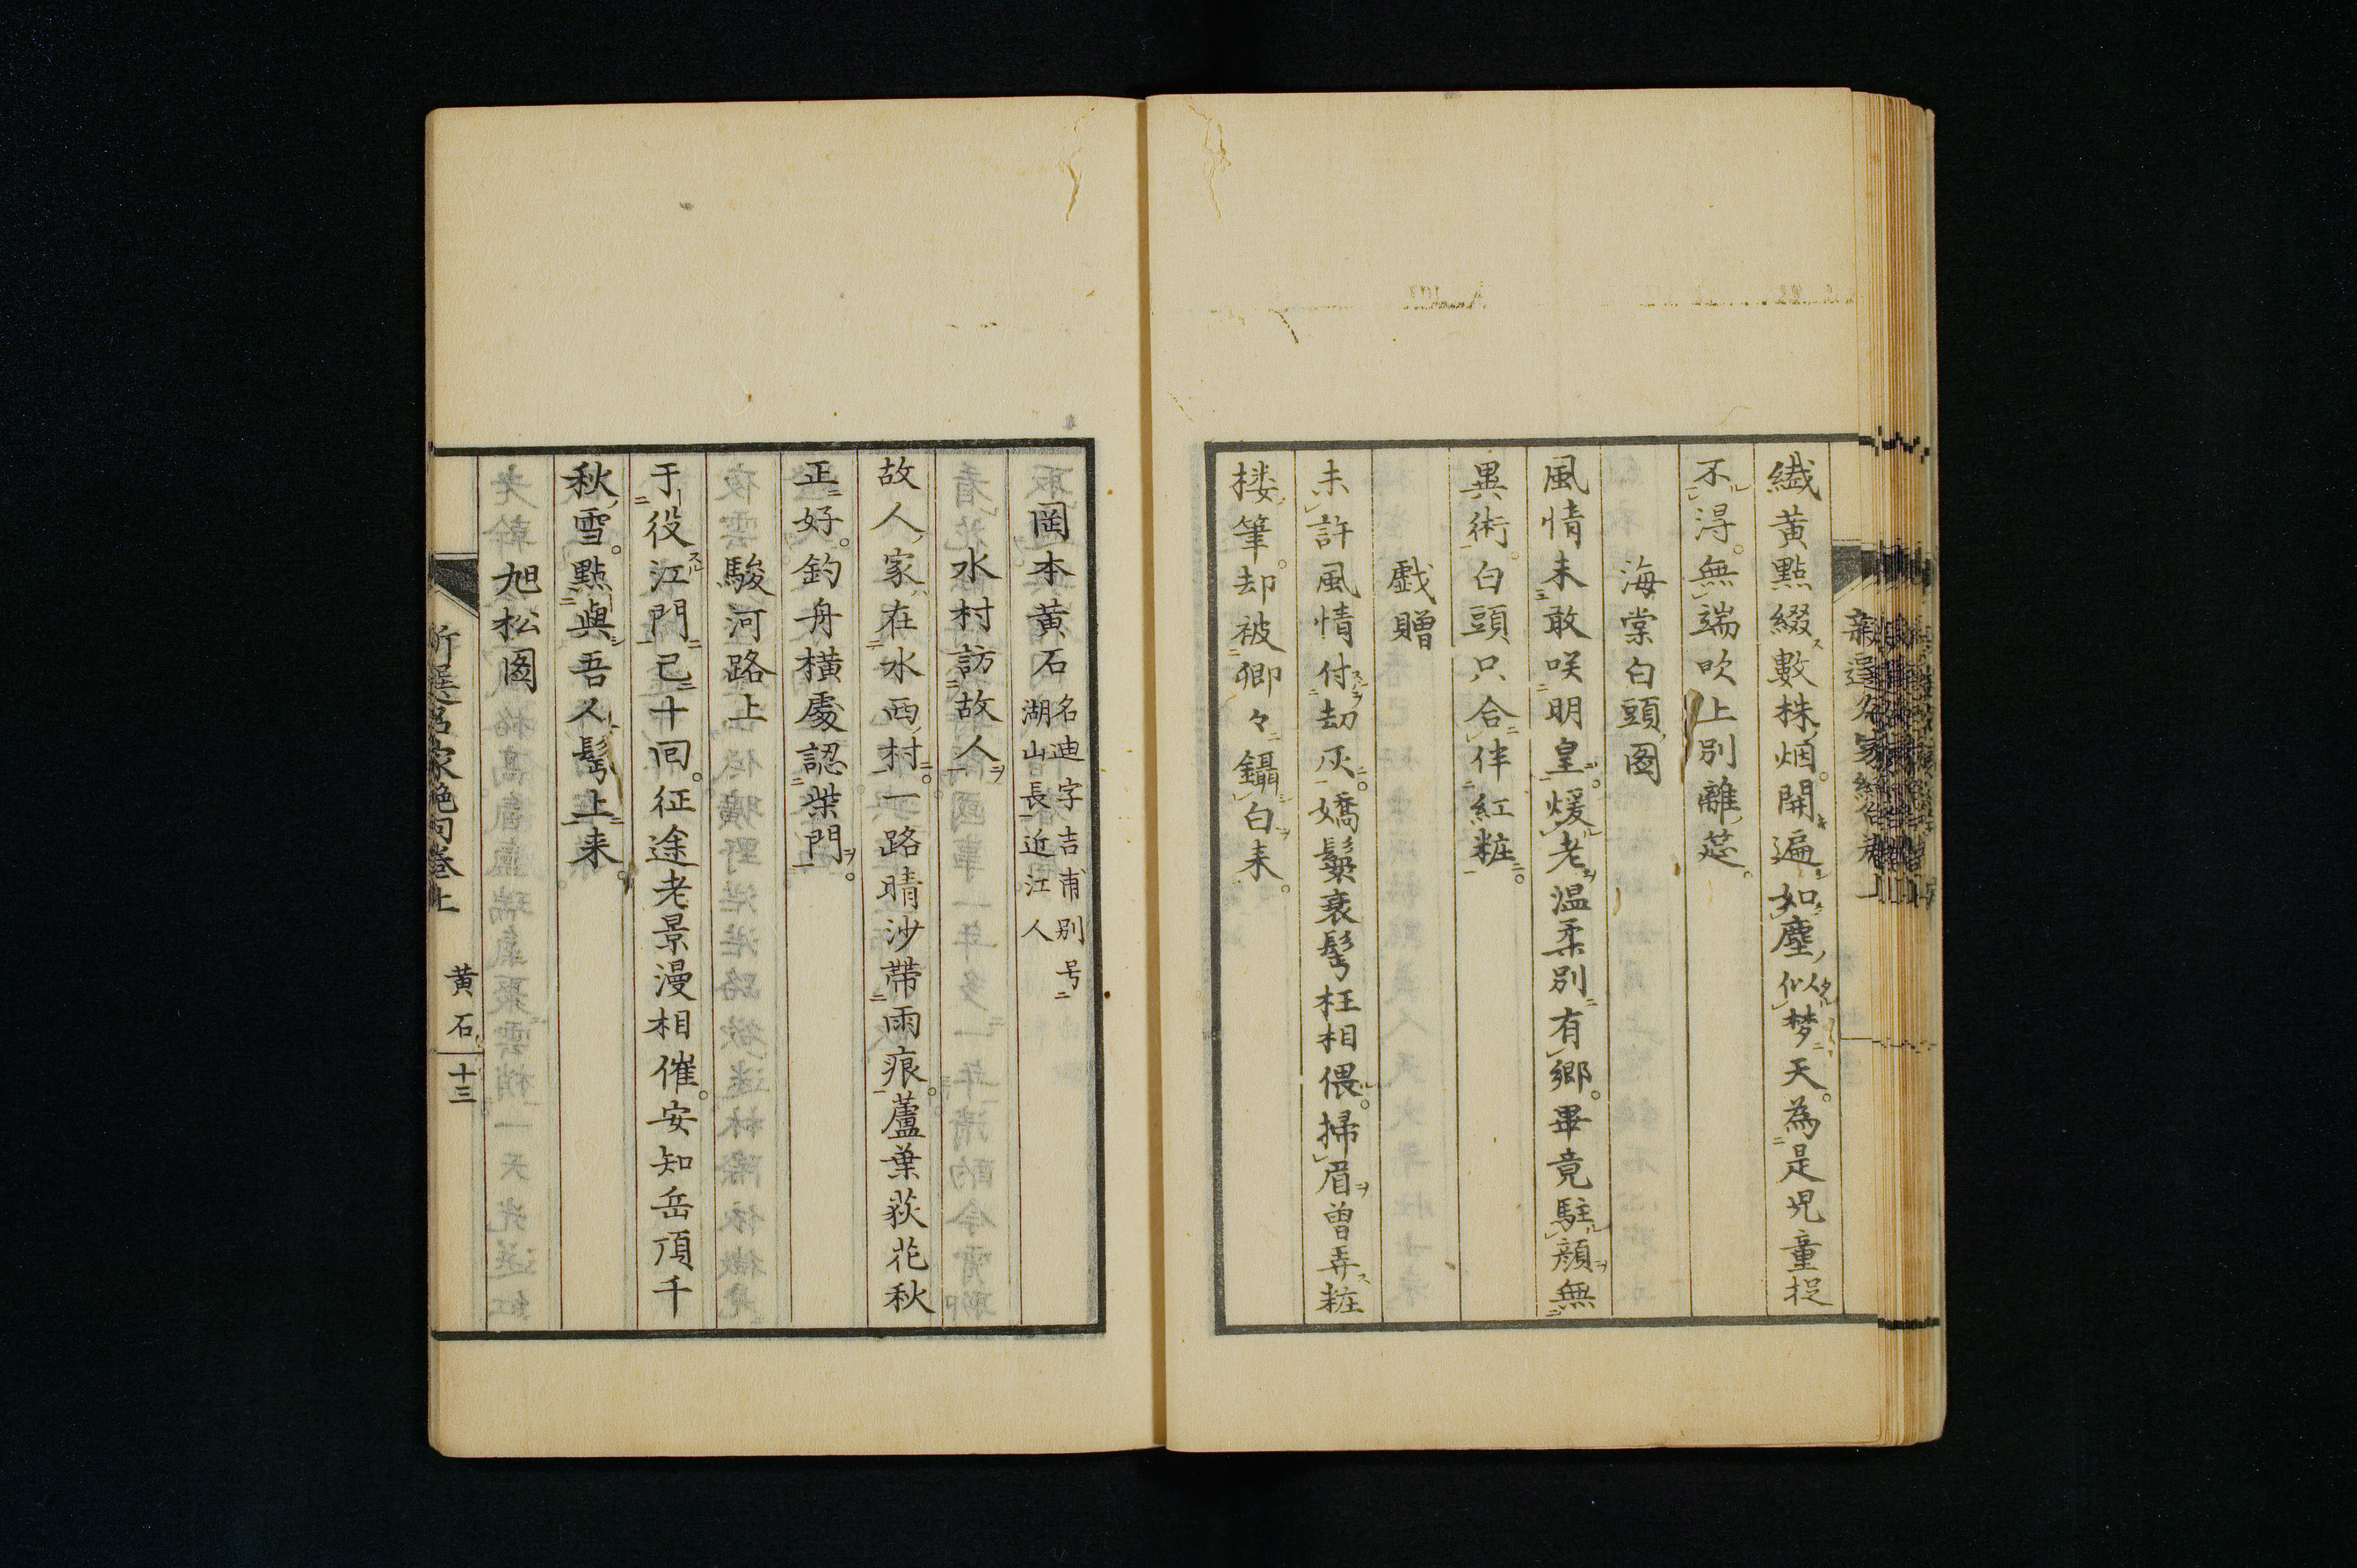 纎黄點綴數株烟開遍如塵似梦天為是児童捉
不淂無端吹上別離莚
海棠白頭圖
風情未敢咲明皇煖老温柔別有郷畢竟駐顔無
異術白頭只合伴紅粧
戯贈
未許風情付劫灰嬌鬟衰髩枉相偎掃眉曽弄粧
楼筆却被卿々鑷白来
岡本黄石 名迪字吉甫別号
湖山長近江人
水村訪故人
故人家在水西村一路晴沙帶雨痕蘆葉荻花秋
正好釣舟横處認柴門
駿河路上
于役江門已十回征途老景漫相催安知岳頂千
秋雪點與吾人髩上来
旭松圖
新選名家絶句巻上 黄石 十三